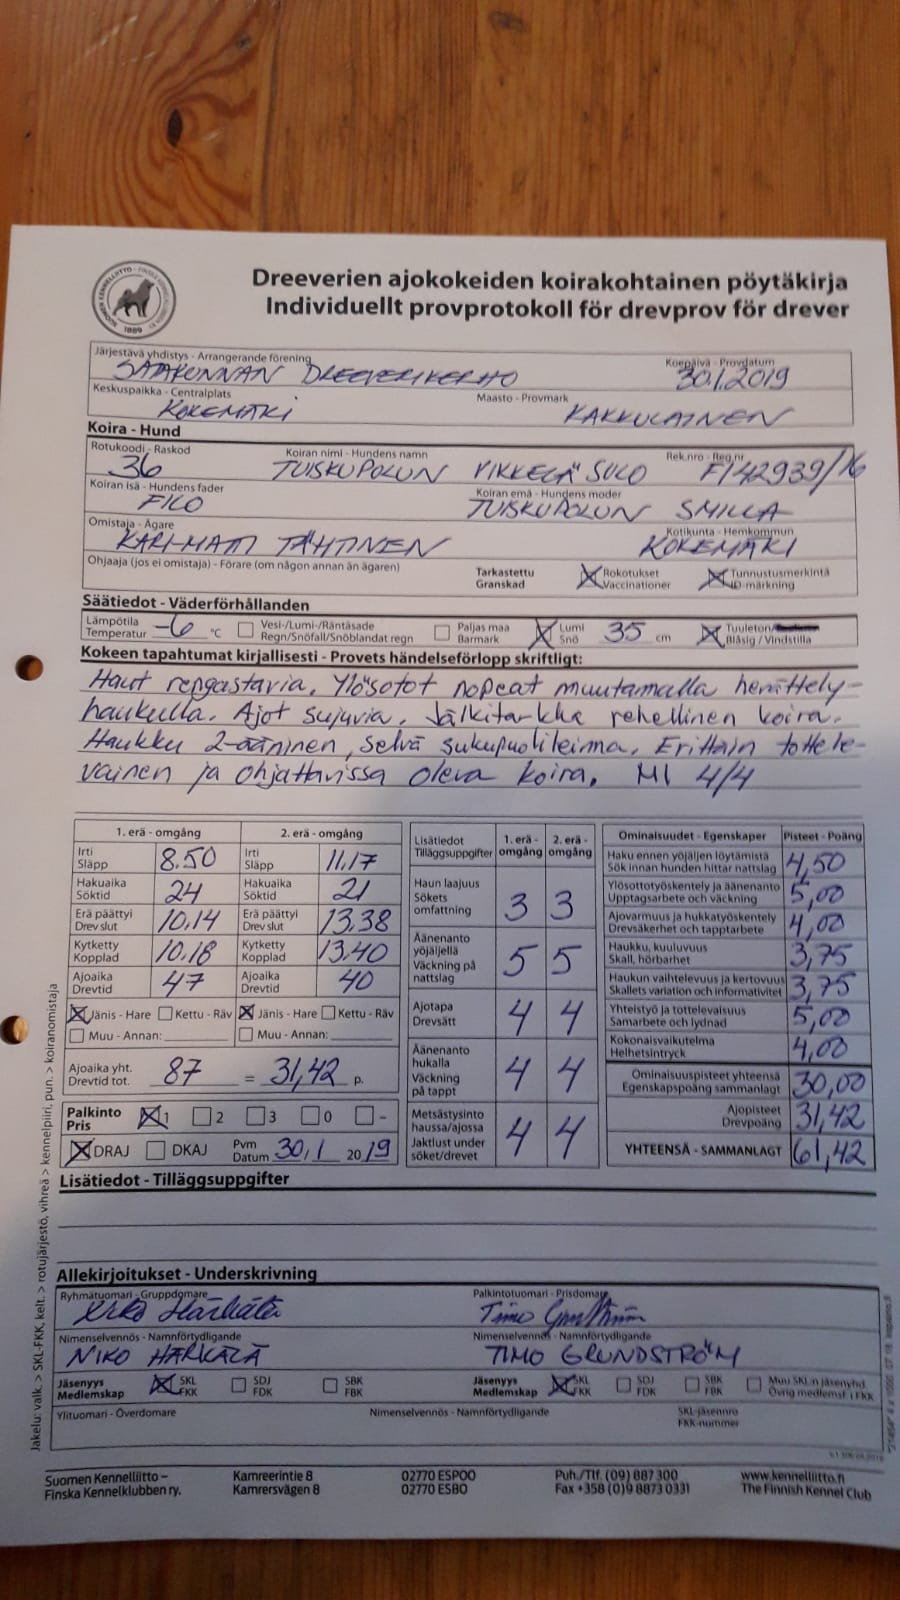 SUOMEN KENNELLIITTO - FINSKA KENNELKLUBBEN RY
1889
Dreeverien ajokokeiden koirakohtainen pöytäkirja
Individuellt provprotokoll för drevprov för drever
Järjestävä yhdistys - Arrangerande förening
Koepäivä - Provdatum
SATAKUNNAN DREEVERIKERHO 30.1.2019
Keskuspaikka - Centralplats
Maasto - Provmark
KOKEMÄKI KAKKULAINEN
Koira - Hund
Rotukoodi - Raskod Koiran nimi - Hundens namn Rek.nro - Reg.nr
36 TUISKUPOLUN VIKKELÄ SULO FI42939/16
Koiran isä - Hundens fader Koiran emä - Hundens moder
FILO TUISKUPOLUN SMILLA
Omistaja - Ägare Kotikunta - Hemkommun
KARI-MATTI TÄHTINEN KOKEMÄKI
Ohjaaja (jos ei omistaja) - Förare (om någon annan än ägaren)
Tarkastettu Granskad
Rokotukset Vaccinationer
Tunnustusmerkintä ID-märkning
Säätiedot - Väderförhållanden
Lämpötila Temperatur -6 °C
Vesi-/Lumi-/Räntäsade Regn/Snöfall/Snöblandat regn
Paljas maa Barmark
Lumi Snö 35 cm
Tuuleton/
Blåsig / Vindstilla
Kokeen tapahtumat kirjallisesti - Provets händelseförlopp skriftligt:
Haut rengastavia. Ylösotot nopeat muutamalla herättely-
haukulla. Ajot sujuvia. Jälkitarkka rehellinen koira.
Haukku 2-ääninen, selvä sukupuolileima. Erittäin tottele-
vainen ja ohjattavissa oleva koira. MI 4/4
1. erä - omgång 2. erä - omgång
Irti Släpp 8.50 Irti Släpp 11.17
Hakuaika Söktid 24 Hakuaika Söktid 21
Erä päättyi Drev slut 10.14 Erä päättyi Drev slut 13.38
Kytketty Kopplad 10.18 Kytketty Kopplad 13.40
Ajoaika Drevtid 47 Ajoaika Drevtid 40
Jänis - Hare Kettu - Räv Jänis - Hare Kettu - Räv
Muu - Annan: Muu - Annan:
Ajoaika yht. Drevtid tot. 87 = 31,42 p.
Palkinto Pris 1 2 3 0 -
DRAJ DKAJ Pvm Datum 30.1 2019
Lisätiedot Tilläggsuppgifter 1. erä - omgång 2. erä - omgång
Haun laajuus Sökets omfattning 3 3
Äänenanto yöjäljellä Väckning på nattslag 5 5
Ajotapa Drevsätt 4 4
Äänenanto hukalla Väckning på tappt 4 4
Metsästysinto haussa/ajossa Jaktlust under söket/drevet 4 4
Ominaisuudet - Egenskaper Pisteet - Poäng
Haku ennen yöjäljen löytämistä Sök innan hunden hittar nattslag 4,50
Ylösottotyöskentely ja äänenanto Upptagsarbete och väckning 5,00
Ajovarmuus ja hukkatyöskentely Drevsäkerhet och tapptarbete 4,00
Haukku, kuuluvuus Skall, hörbarhet 3,75
Haukun vaihtelevuus ja kertovuus Skallets variation och informativitet 3,75
Yhteistyö ja tottelevaisuus Samarbete och lydnad 5,00
Kokonaisvaikutelma Helhetsintryck 4,00
Ominaisuuspisteet yhteensä Egenskapspoäng sammanlagt 30,00
Ajopisteet Drevpoäng 31,42
YHTEENSÄ - SAMMANLAGT 61,42
Lisätiedot - Tilläggsuppgifter
Allekirjoitukset - Underskrivning
Ryhmätuomari - Gruppdomare Palkintotuomari - Prisdomare
Niko Härkälä Timo Grundström
Nimenselvennös - Namnförtydligande Nimenselvennös - Namnförtydligande
NIKO HÄRKÄLÄ TIMO GRUNDSTRÖM
Jäsenyys Medlemskap SKL FKK SDJ FDK SBK FBK
Jäsenyys Medlemskap SKL FKK SDJ FDK SBK FBK Muu SKL:n jäsenyhd. Övrig medlemsf. i FKK
Ylituomari - Överdomare Nimenselvennös - Namnförtydligande SKL-jäsennro FKK-nummer
Jakelu: valk. > SKL-FKK, kelt. > rotujärjestö, vihreä > kennelpiiri, pun. > koiranomistaja
Suomen Kennelliitto – Kamreerintie 8 02770 ESPOO Puh./Tlf. (09) 887 300 www.kennelliitto.fi
Finska Kennelklubben ry. Kamrersvägen 8 02770 ESBO Fax +358 (0)9 8873 0331 The Finnish Kennel Club